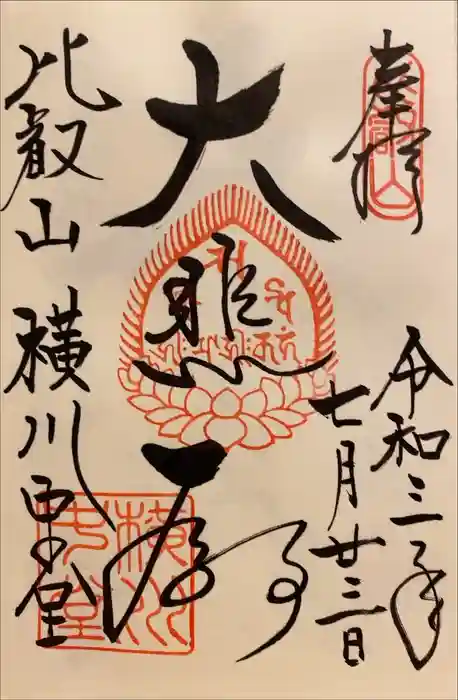 奉拝
令和三年
七月廿三日
大悲殿
比叡山 横川中堂
横川
中堂